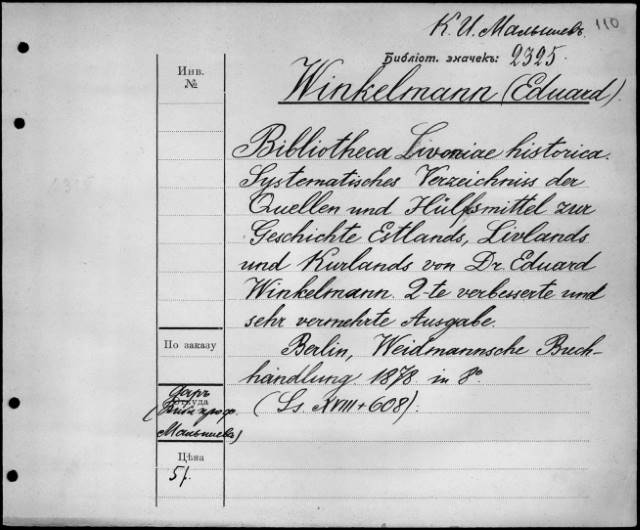 К. И. Малышевъ. 110
Библіот. значекъ: 2325.
Инв.
№
Winkelmann (Eduard).
Bibliotheca Livoniae historica.
Systematisches Verzeichniss der
Quellen und Hülfsmittel zur
Geschichte Estlands, Livlands
und Kurlands von Dr. Eduard
Winkelmann. 2-te verbesserte und
sehr vermehrte Ausgabe.
По заказу
Berlin, Weidmannsche Buch-
handlung. 1878 in 8°.
(Ss. XVIII + 608).
Даръ
Откуда
Малышева)
Цѣна
5/.